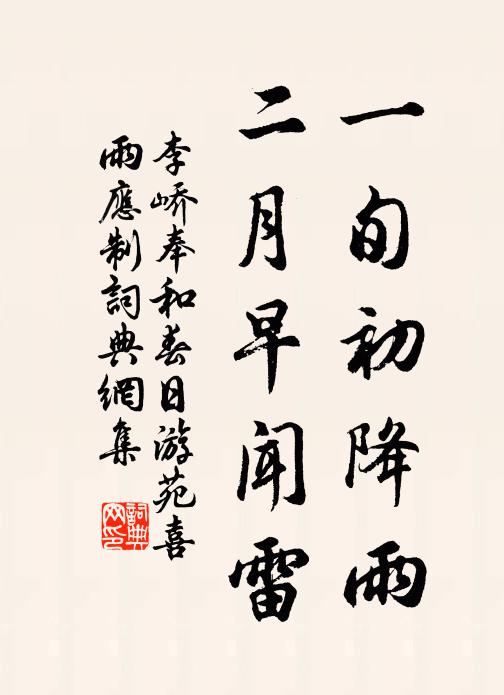 一旬初降雨
二月早闻雷
李嶠奉和春日游苑喜
雨應制詞典網集
詞典
网印